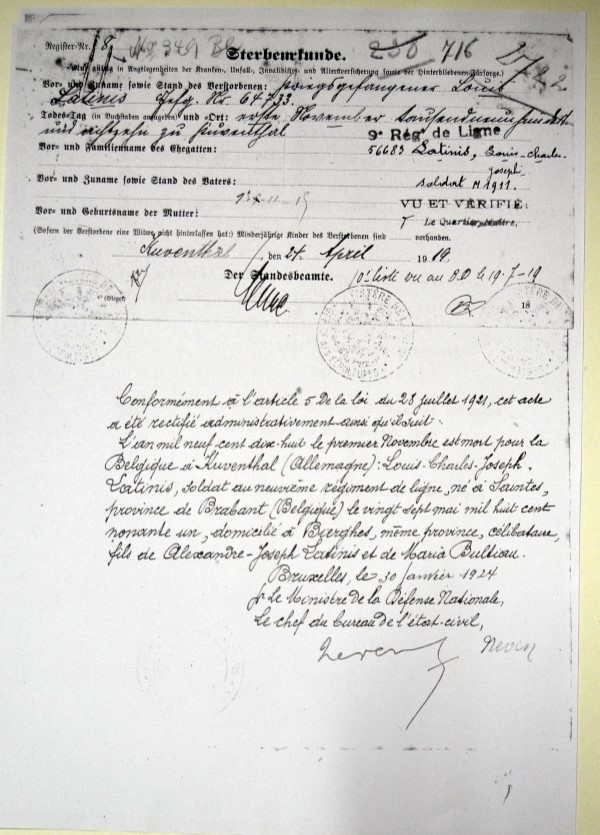 Register-Nr. 8 No 349 716
Sterbeurkunde.
(Nur gültig in Angelegenheiten der Kranken-, Unfall-, Invaliditäts- und Altersversicherung sowie der Hinterbliebenen-Fürsorge.)
Vor- und Zuname sowie Stand des Verstorbenen: Kriegsgefangener Louis
Latinis Gefg. Nr. 64733.
Todes-Tag (in Buchstaben anzugeben) und Ort: erste November tausendneunhundert
und achtzehn zu Kuventhal
9e Rég t de Ligne
Vor- und Familienname des Ehegatten:
56683 Latinis, Louis-Charles-
Joseph
Vor- und Zuname sowie Stand des Vaters:
soldat M 1911.
VU ET VÉRIFIÉ:
Vor- und Geburtsname der Mutter:
Le Quartier-Maître.
(Sofern der Verstorbene eine Witwe nicht hinterlassen hat:) Minderjährige Kinder des Verstorbenen sind vorhanden.
Kuventhal, den 24. April 1919.
Der Standesbeamte.
liste vu au BD le 19-7-19
18
Conformément à l'article 5 de la loi du 28 juillet 1921, cet acte
a été rectifié administrativement ainsi qu'il suit:
L'an mil neuf cent dix-huit le premier Novembre est mort pour la
Belgique à Kuventhal (Allemagne): Louis-Charles-Joseph
Latinis, soldat au neuvième régiment de ligne, né à Saintes,
province de Brabant (Belgique) le vingt sept mai mil huit cent
nonante un, domicilié à Bierghes, même province, célibataire,
fils de Alexandre-Joseph Latinis et de Maria Bultiau.
Bruxelles, le 30 janvier 1924
Pr Le Ministre de la Défense Nationale,
Le chef du bureau de l'état-civil,
Neven